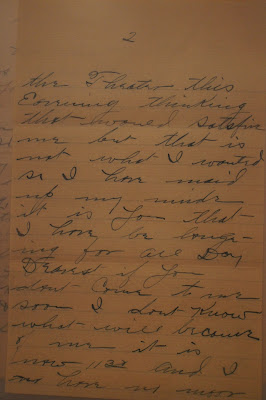 2
the Theatre this
Evening thinking
that would satisfie
me but that is
not what I wanted
so I have maid
up my minde
it is You that
I have be longe-
ing for all Day
Dearest if Yo
dont Come to me
soon I dont Know
what will become
of me it is
now 11 and I
have no more